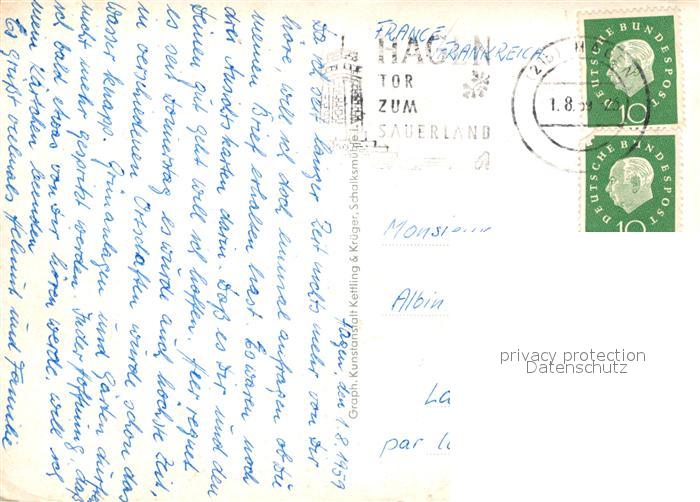 FRANCE
FRANKREICH
HAGEN
TOR
ZUM
SAUERLAND
1.8.59
DEUTSCHE BUNDESPOST
10
DEUTSCHE BUNDESPOST
10
Hagen, den 1.8.1959
Da ich seit langer Zeit nichts mehr von Dir
höre, will ich doch einmal anfragen ob Du
meinen Brief erhalten hast. Es waren noch
drei Ansichtskarten darin. Daß es Dir und den
Deinen gut geht will ich hoffen. Hier regnet
es seit Donnerstag es wurde auch höchste Zeit,
in verschiedenen Ortschaften wurde schon das
Wasser knapp. Grünanlagen und Gärten durften
nicht mehr gespritzt werden. In der Hoffnung, daß
ich bald etwas von Dir hören werde, will ich
mein Kärtchen beenden
Es grüßt vielmals Helmut und Familie
Graph. Kunstanstalt Kettling & Krüger, Schalksmühle
Monsieur
Albin
La
par
privacy protection
Datenschutz